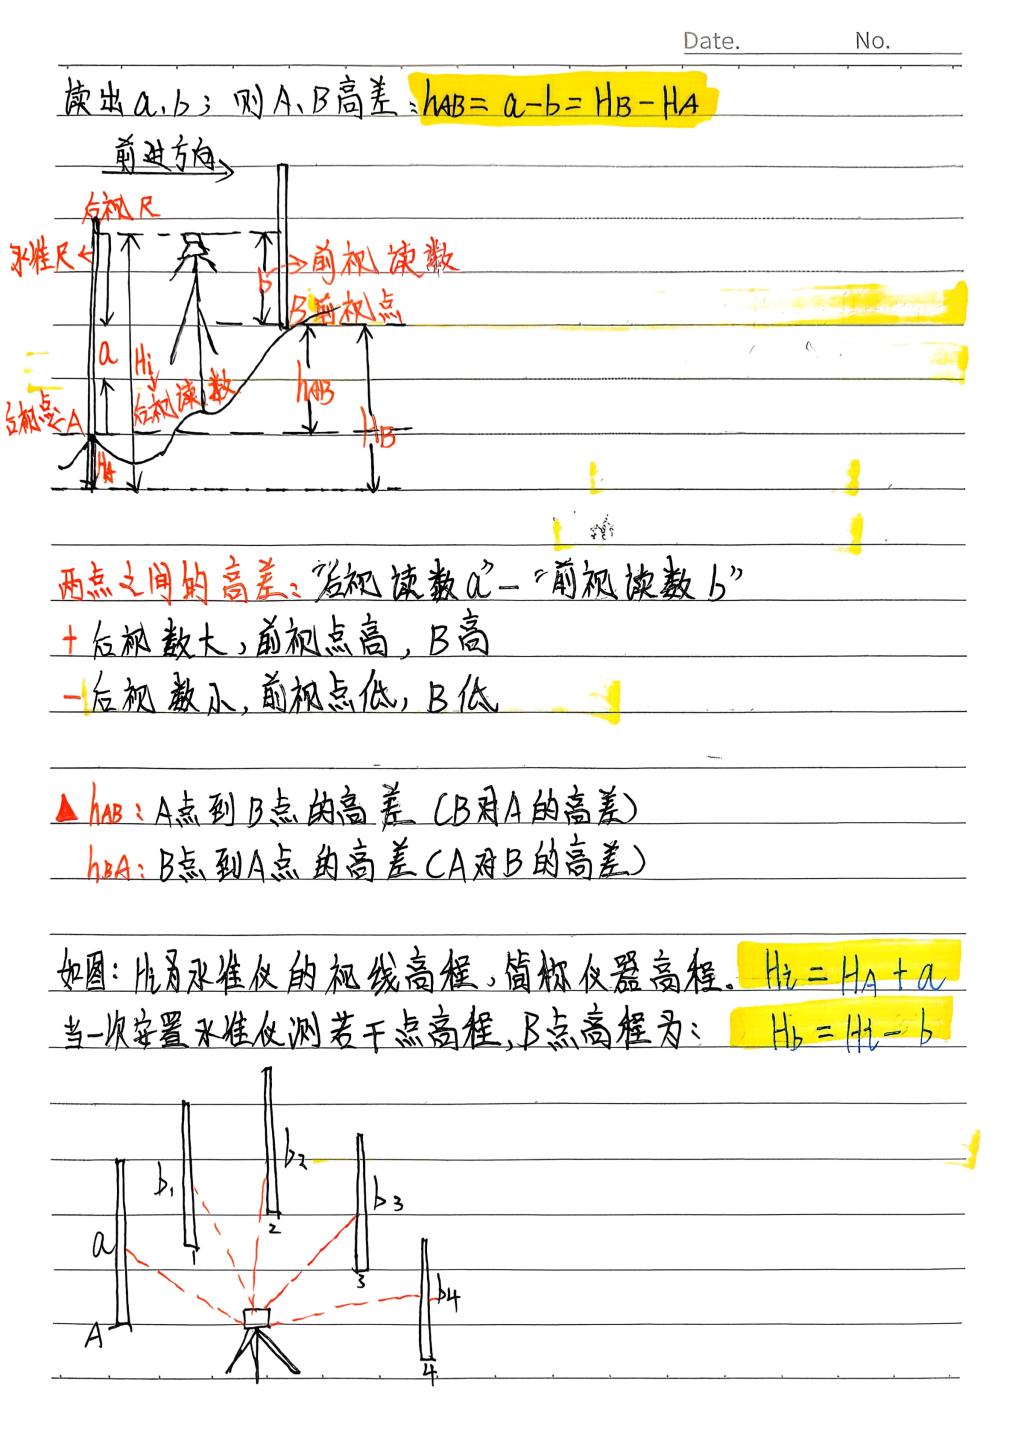 Date. No.
读出a、b；则A、B高差：hAB= a-b= HB-HA
前进方向
后视尺
水准尺
b
前视读数
B前视点
a
Hi
后视读数
hAB
后视点 A
HB
HA
两点之间的高差："后视读数a"-"前视读数b"
+ 后视数大，前视点高，B高
- 后视数小，前视点低，B低
▲ hAB：A点到B点的高差（B对A的高差）
hBA：B点到A点的高差（A对B的高差）
如图：Hi为水准仪的视线高程，简称仪器高程。 Hi = HA + a
当一次安置水准仪测若干点高程，B点高程为： Hb = Hi - b
b2
b1
b3
2
a
1
3
b4
A
4